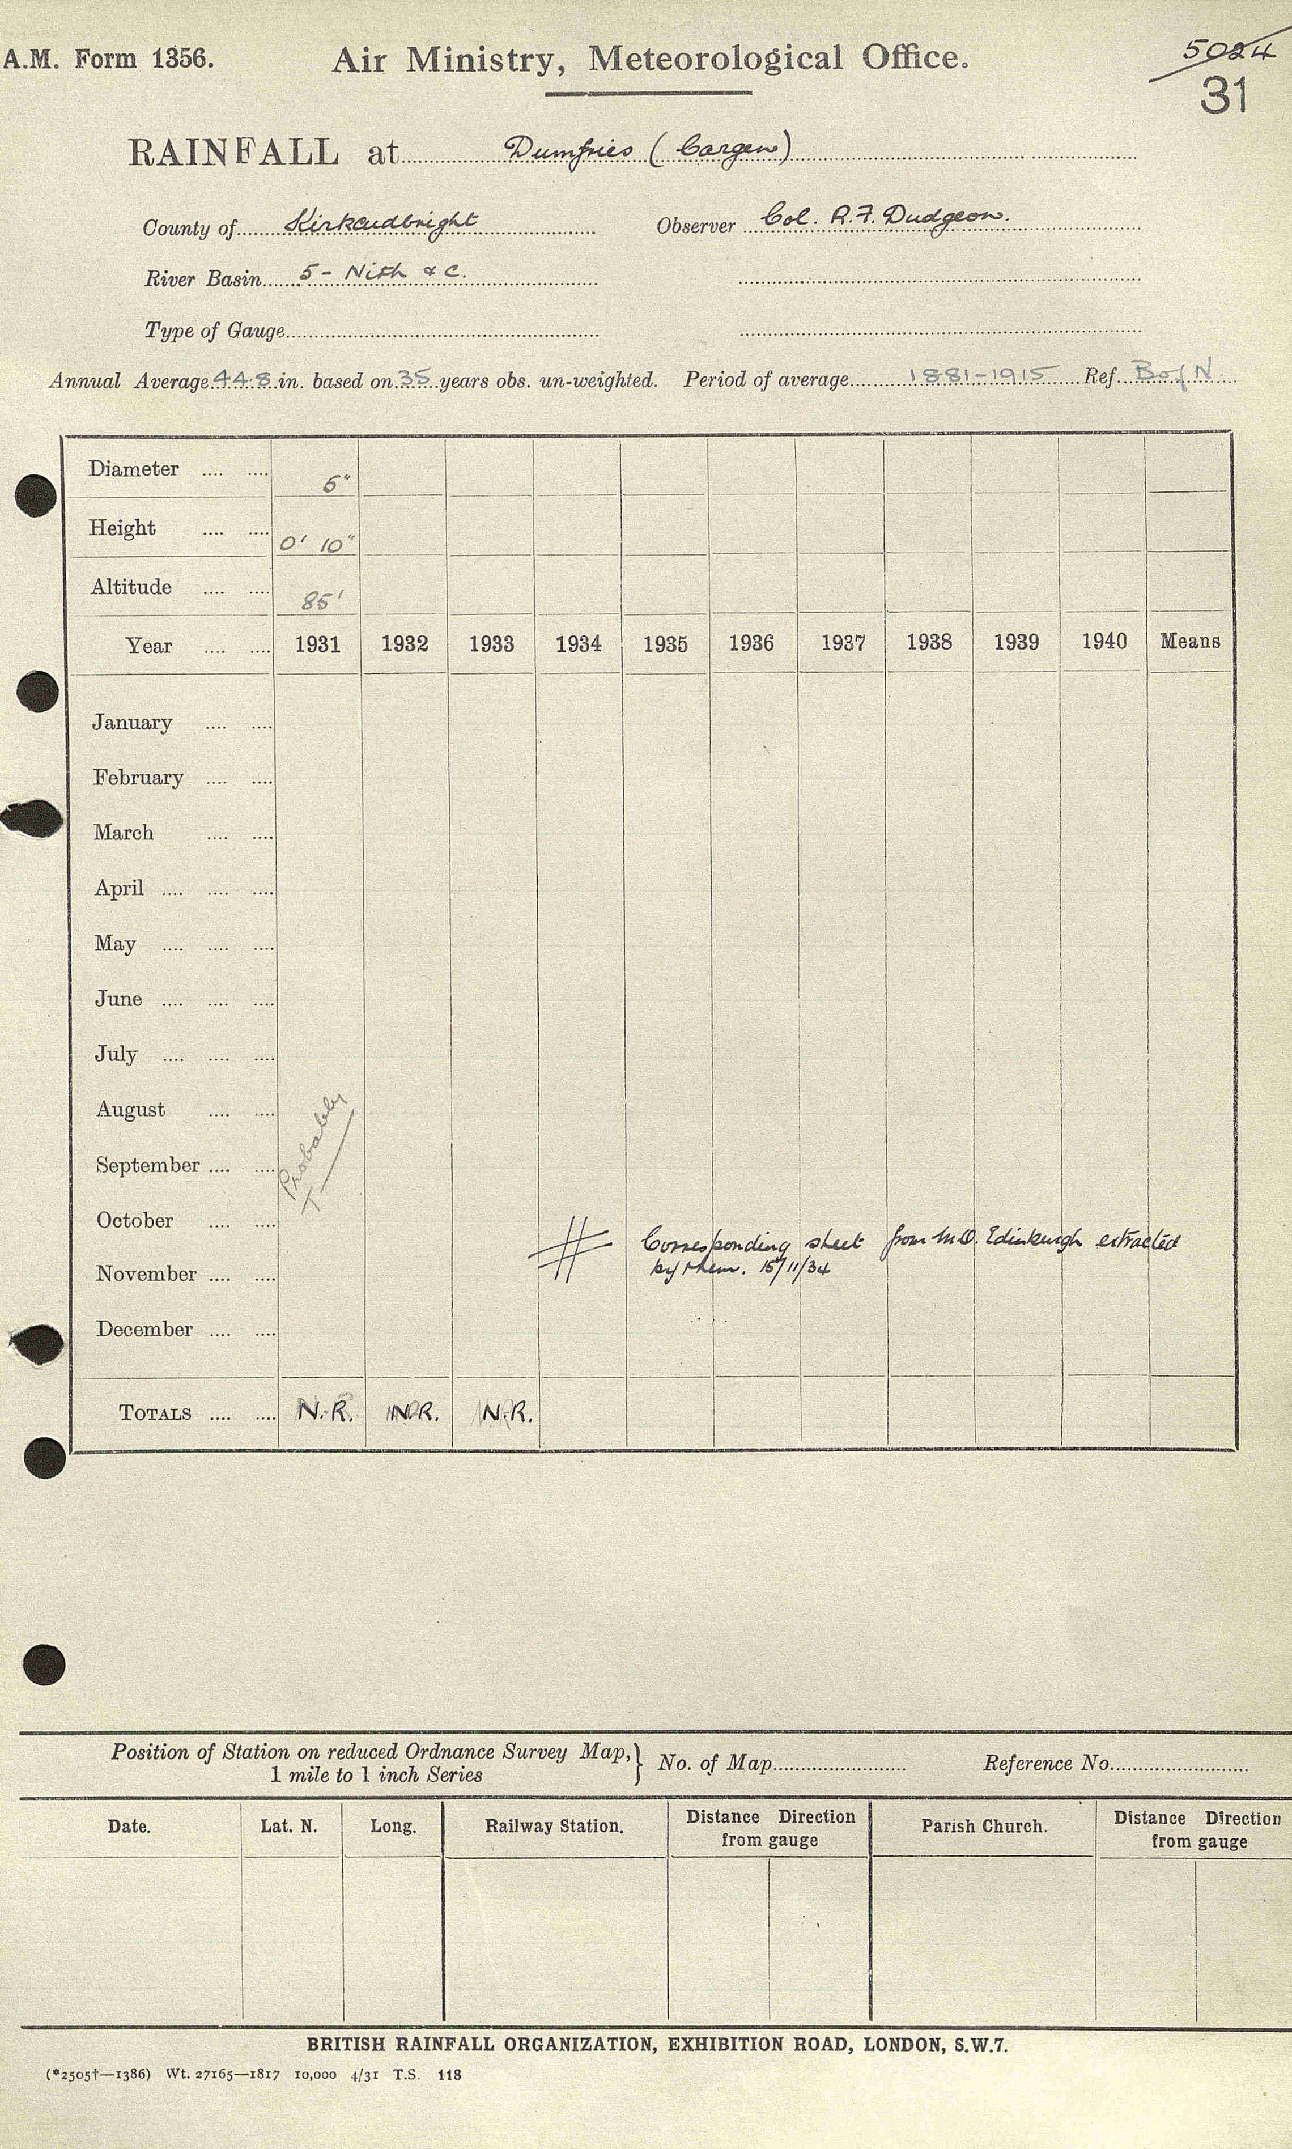 A.M. Form 1356.
Air Ministry, Meteorological Office.
5024
31
RAINFALL at Dumfries (Cargen)
County of Kirkcudbright Observer Col. R.F. Dudgeon.
River Basin 5 - Nith & C.
Type of Gauge
Annual Average 44.8 in. based on 35 years obs. un-weighted. Period of average 1881-1915 Ref. B of N
Diameter .... .... 5"
Height .... .... 0' 10"
Altitude .... .... 85'
Year .... .... 1931 1932 1933 1934 1935 1936 1937 1938 1939 1940 Means
January .... ....
February .... ....
March .... ....
April .... .... ....
May .... .... ....
June .... .... ....
July .... .... ....
August .... ....
September .... ....
Probably
T
October .... ....
Corresponding sheet from M.O. Edinburgh extracted
by them. 15/11/34
November .... ....
December .... ....
TOTALS .... .... N.R. N.R. N.R.
Position of Station on reduced Ordnance Survey Map,
1 mile to 1 inch Series
No. of Map Reference No.
Date. Lat. N. Long. Railway Station. Distance Direction from gauge Parish Church. Distance Direction from gauge
BRITISH RAINFALL ORGANIZATION, EXHIBITION ROAD, LONDON, S.W.7.
(*2505†—1386) Wt. 27165—1817 10,000 4/31 T.S. 118